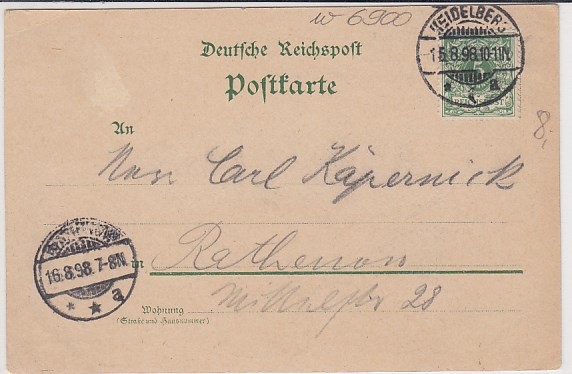 w 6900
Deutsche Reichspost
Postkarte
HEIDELBERG
15.8.98.10-11N.
a
8,
An
Carl Käpernick
in Rathenow
16.8.98.7-8N.
a
Wohnung
28
(Straße und Hausnummer)